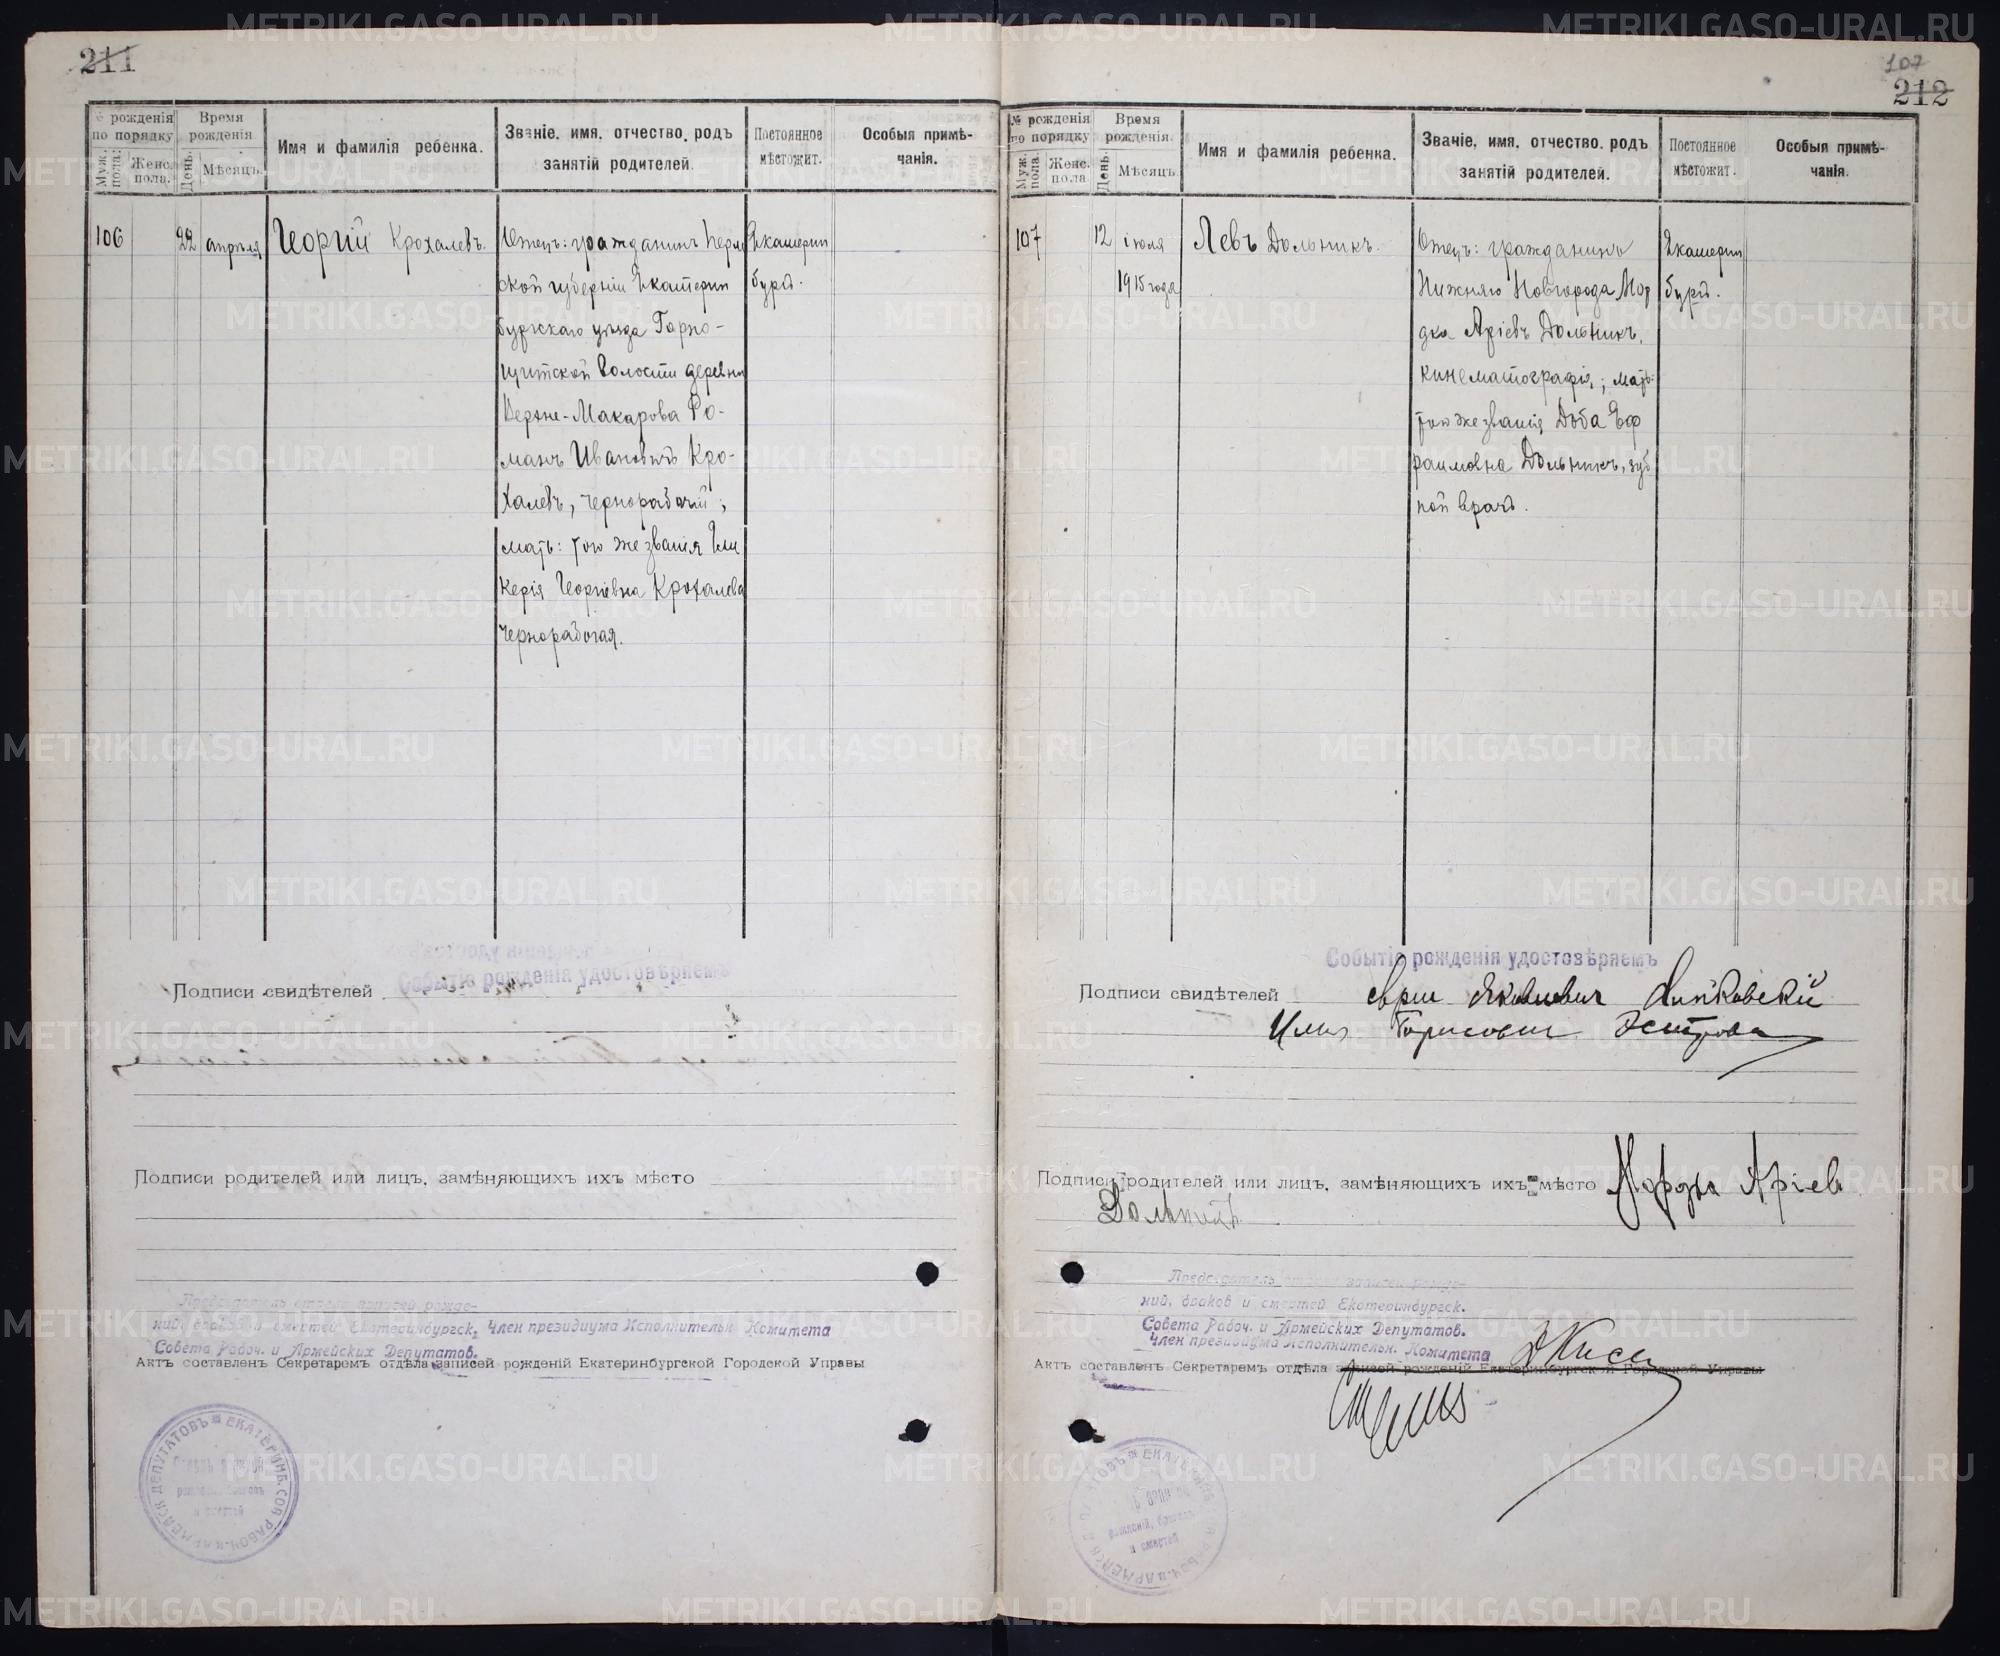 211
№ рожденія по порядку
Муж. пола.
Женс. пола.
Время рожденія
День.
Мѣсяцъ.
Имя и фамилія ребенка.
Званіе, имя, отчество, родъ занятій родителей.
Постоянное мѣстожит.
Особыя примѣчанія.
106
22
апрѣля
Георгій Крохалевъ.
Отецъ: гражданинъ Перм
ской губерніи Екатерин
бургскаго уѣзда Горно-
щитской волости деревни
Верхне-Макарова Ро-
манъ Ивановичъ Кро-
халевъ, чернорабочій;
мать: того же званія Гли
керія Георгіевна Крохалева
чернорабочая.
Екатерин
бургъ.
Событіе рожденія удостовѣряемъ
Подписи свидѣтелей
Подписи родителей или лицъ, замѣняющихъ ихъ мѣсто
Предсѣдатель отдѣла записей рожде-
ній, браков и смертей Екатеринбургск. Член президиума Исполнительн Комитета
Совета Рабоч. и Армейских Депутатов.
Актъ составленъ Секретаремъ отдѣла записей рожденій Екатеринбургской Городской Управы
107
212
№ рожденія по порядку
Муж. пола.
Женс. пола
Время рожденія.
День.
Мѣсяцъ.
Имя и фамилія ребенка.
Званіе, имя, отчество, родъ занятій родителей.
Постоянное мѣстожит.
Особыя примѣчанія.
107
12
іюля
1915 года
Левъ Дольникъ.
Отецъ: гражданинъ
Нижняго Новгорода Мор
дка Аріевъ Дольникъ,
кинематографія; мать:
того же званія Доба Еф
раимовна Дольникъ, зуб
ной врачъ.
Екатерин
бургъ.
Событіе рожденія удостовѣряемъ
Подписи свидѣтелей
Подписи родителей или лицъ, замѣняющихъ ихъ мѣсто Мордка Аріев
Дольникъ
Предсѣдатель отдѣла записей рожде-
ній, браков и смертей Екатеринбургск.
Совета Рабоч. и Армейских Депутатов.
Член президиума Исполнительн. Комитета
Актъ составленъ Секретаремъ отдѣла записей рожденій Екатеринбургской Городской Управы
METRIKI.GASO-URAL.RU